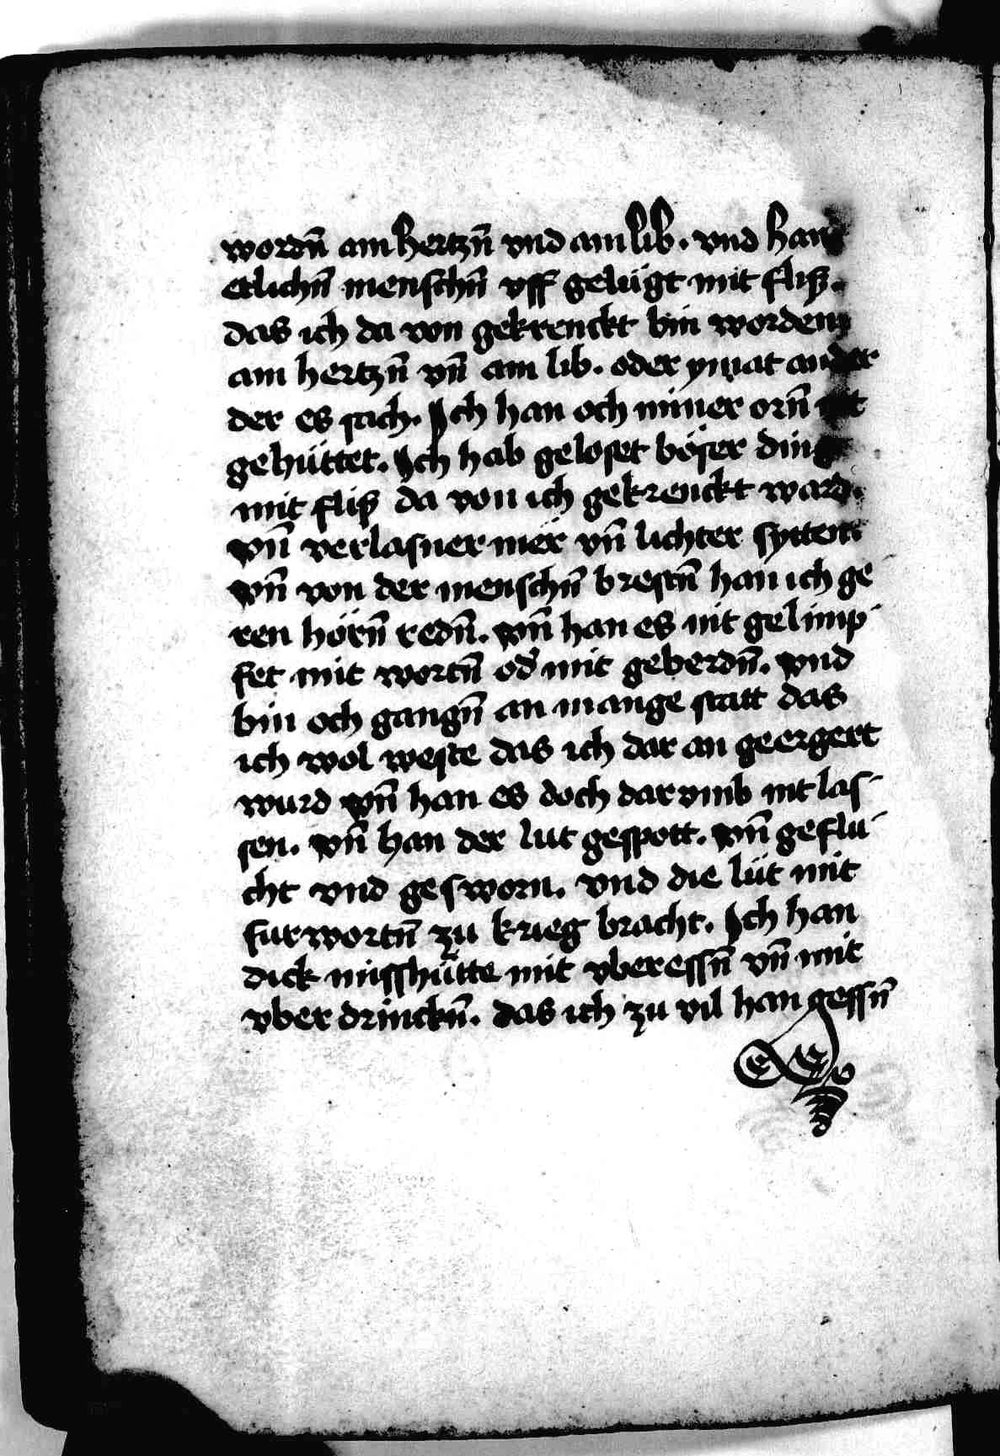 wordn̄ am hertzn̄ vnd am lib. vnd han
etlichn̄ menschn̄ vff gelügt mit fliſʒ.
das ich da von gekrenckt bin worden
am hertzn̄ vn̄ am lib. oder ymat ander
der es sach. Ich han och miner orn̄
gehüttet. Ich hab geloset böser ding
mit fliſʒ da von ich gekrenckt ward.
vn̄ verlasner mer vn̄ lichter sytten.
vn̄ von der menschn̄ brestn̄ han ich ge
ren hörn̄ redn̄. vn̄ han es nit gelimp-
fet mit wortn̄ od' mit geberdn̄. vnd
bin och gangn̄ an mange statt das
ich wol weste das ich dar an geergert
wurd vn̄ han es doch dar vmb nit las-
sen. vn̄ han der lut gespott. vn̄ geflu-
cht vnd gesworn. vnd die lüt mit
fur wortn̄ zu krieg bracht. Ich han
dick misshütte mit vberessn̄ vn̄ mit
vber drinckn̄. das ich zu vil han gessn̄